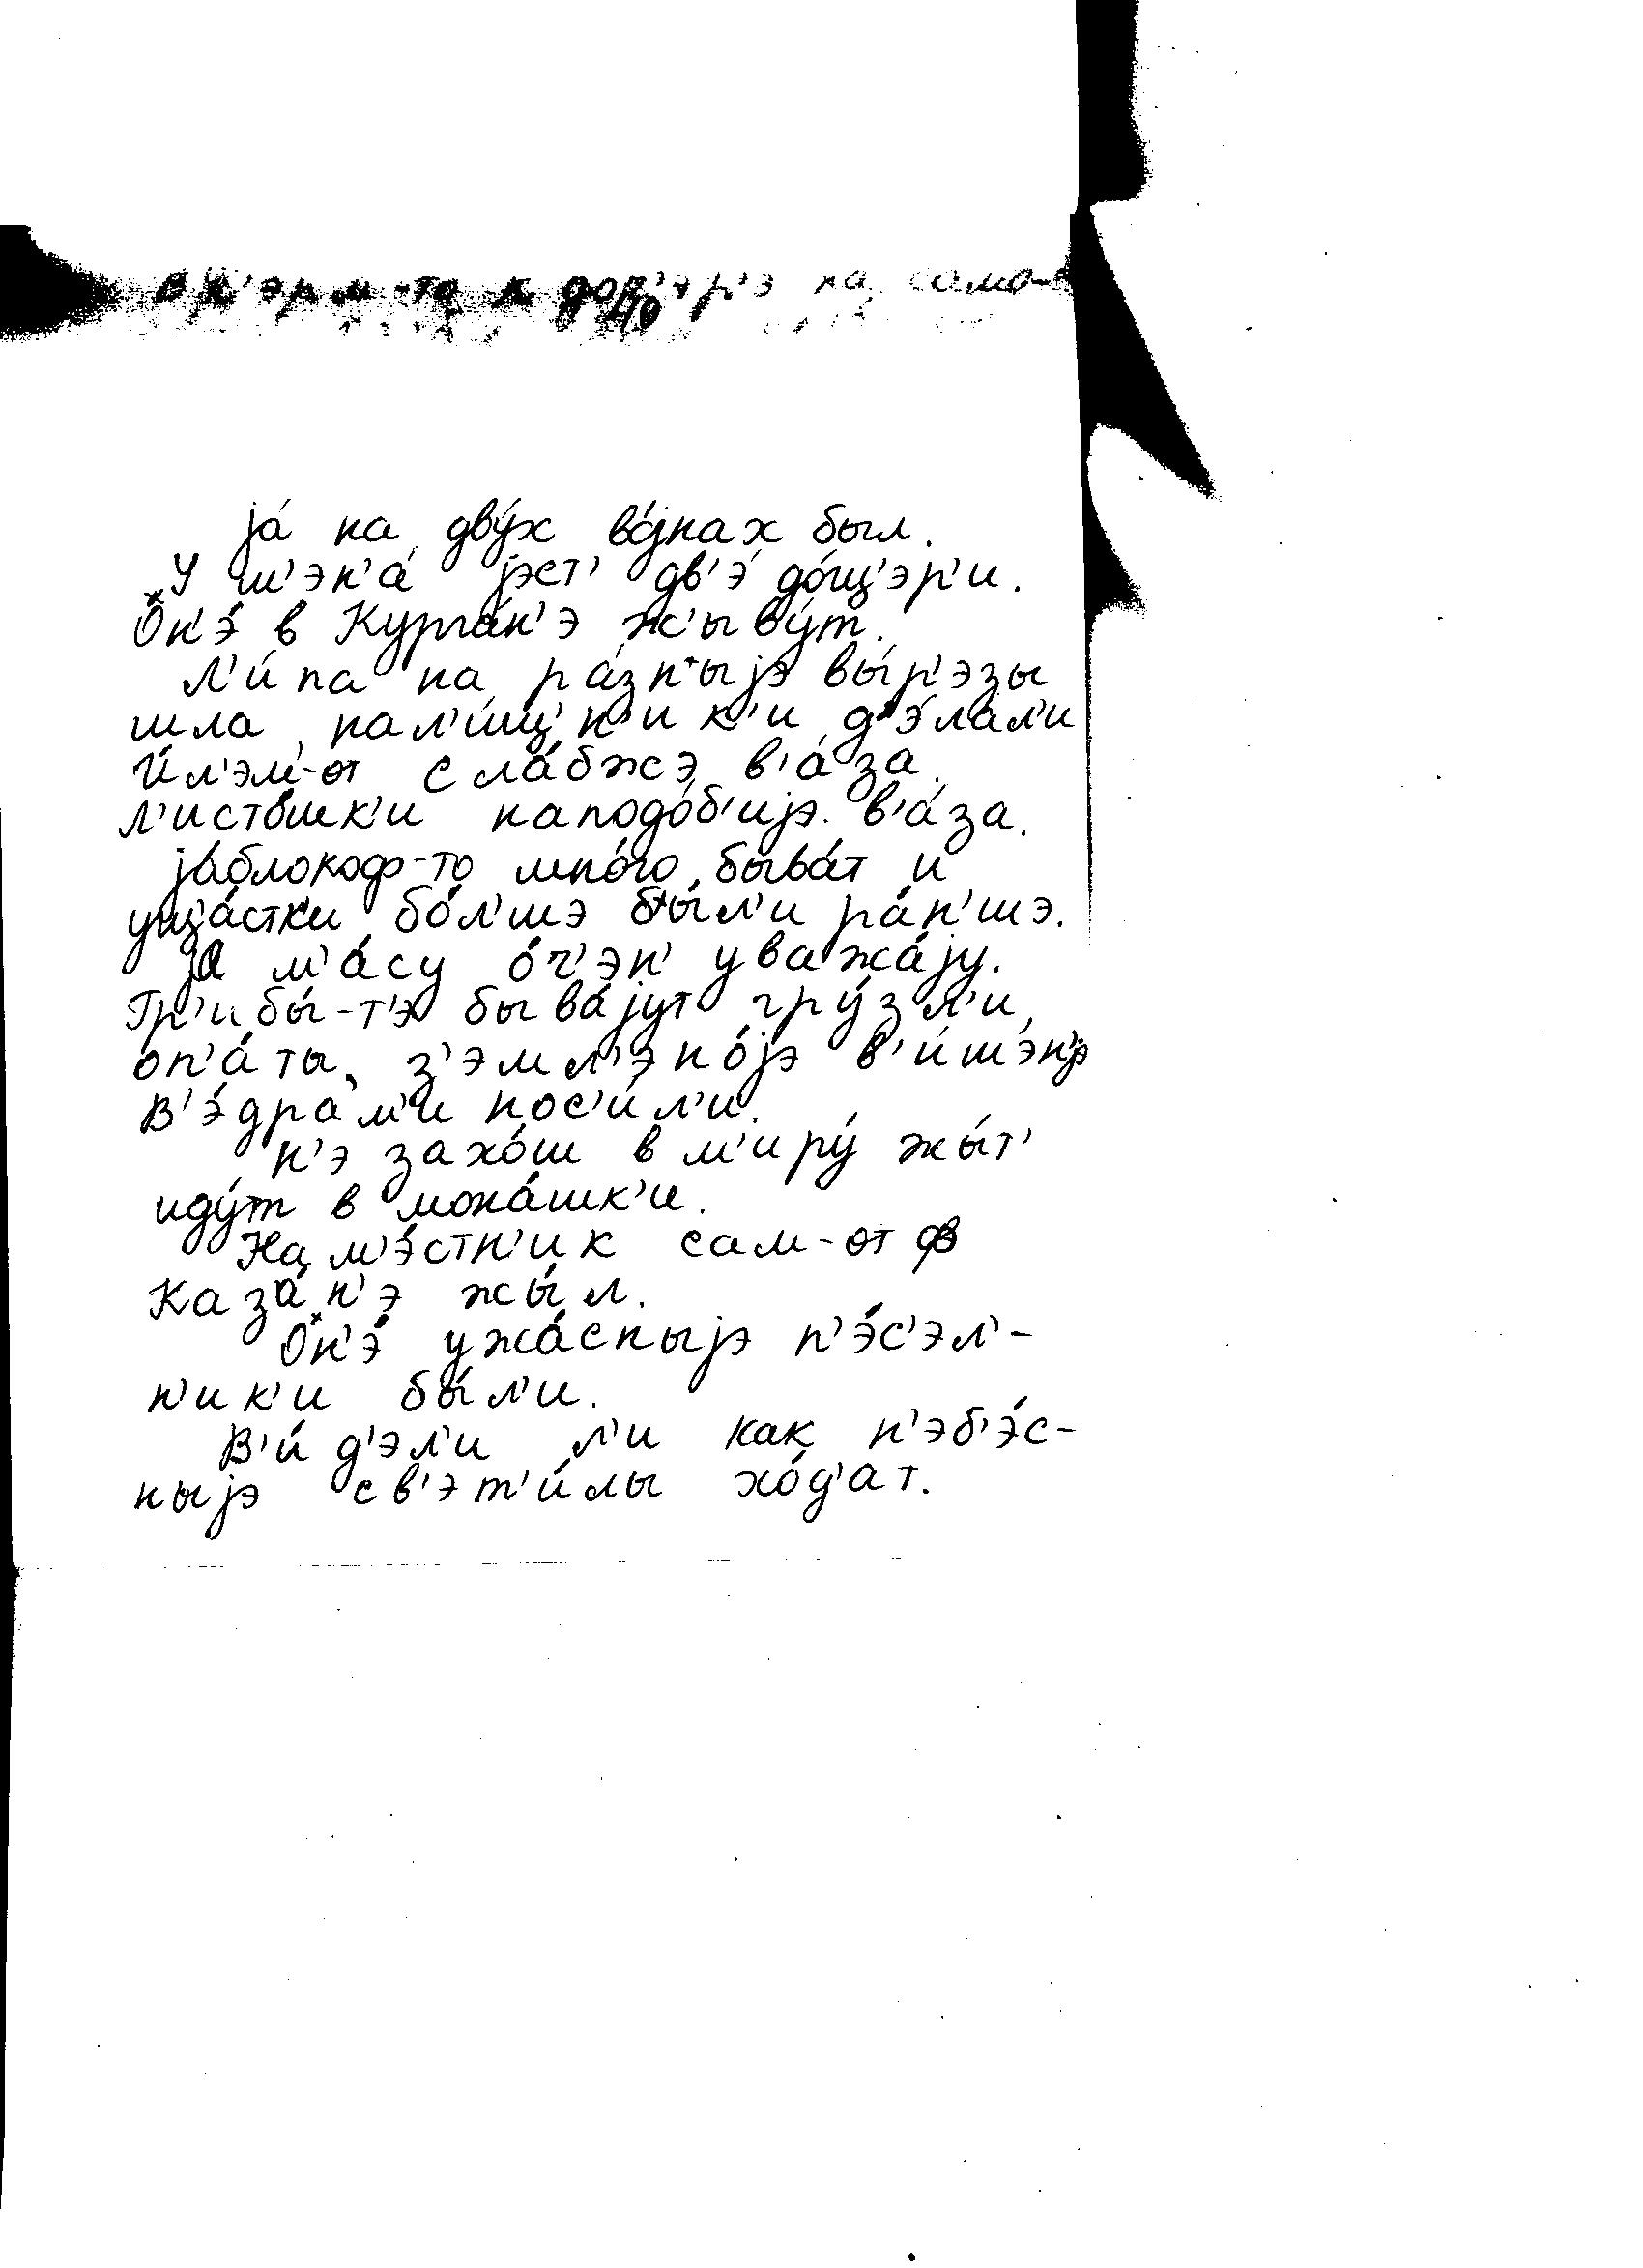 на само-
jа́ на дву́х во́jнах был.
У м'эн'а́ jэст' дв'э́ до́щ'эр'и.
Он'э́ в Курга́н'э ж'ыву́т.
Л'и́па на ра́зныjэ вы́р'эзы
шла, нал'и́щ'н'ик'и д'э́лал'и
И́л'эм-от сла́бжэ в'а́за.
л'исто́шк'и наподо́б'иjэ в'а́за.
jа́блокоф-то мно́го быва́т и
ущ'а́стк'и бо́л'шэ бы́л'и ра́н'шэ.
jа м'а́су о́ч'эн' уважа́jу.
Гр'ибы́-т'э быва́jут гру́зл'и,
оп'а́ты, з'эмл'эно́jэ в'и́шэн'jэ
В'э́драм'и нос'и́л'и.
н'э захо́ш в м'иру́ жы́т'
иду́т в мона́шк'и.
Нам'э́стн'ик сам-от в
Каза́н'э жы́л.
Он'э́ ужа́сныjэ п'э́с'эл'-
н'ик'и бы́л'и.
В'и́д'эл'и л'и как н'эб'э́с-
ныjэ св'эт'и́лы хо́д'ат.